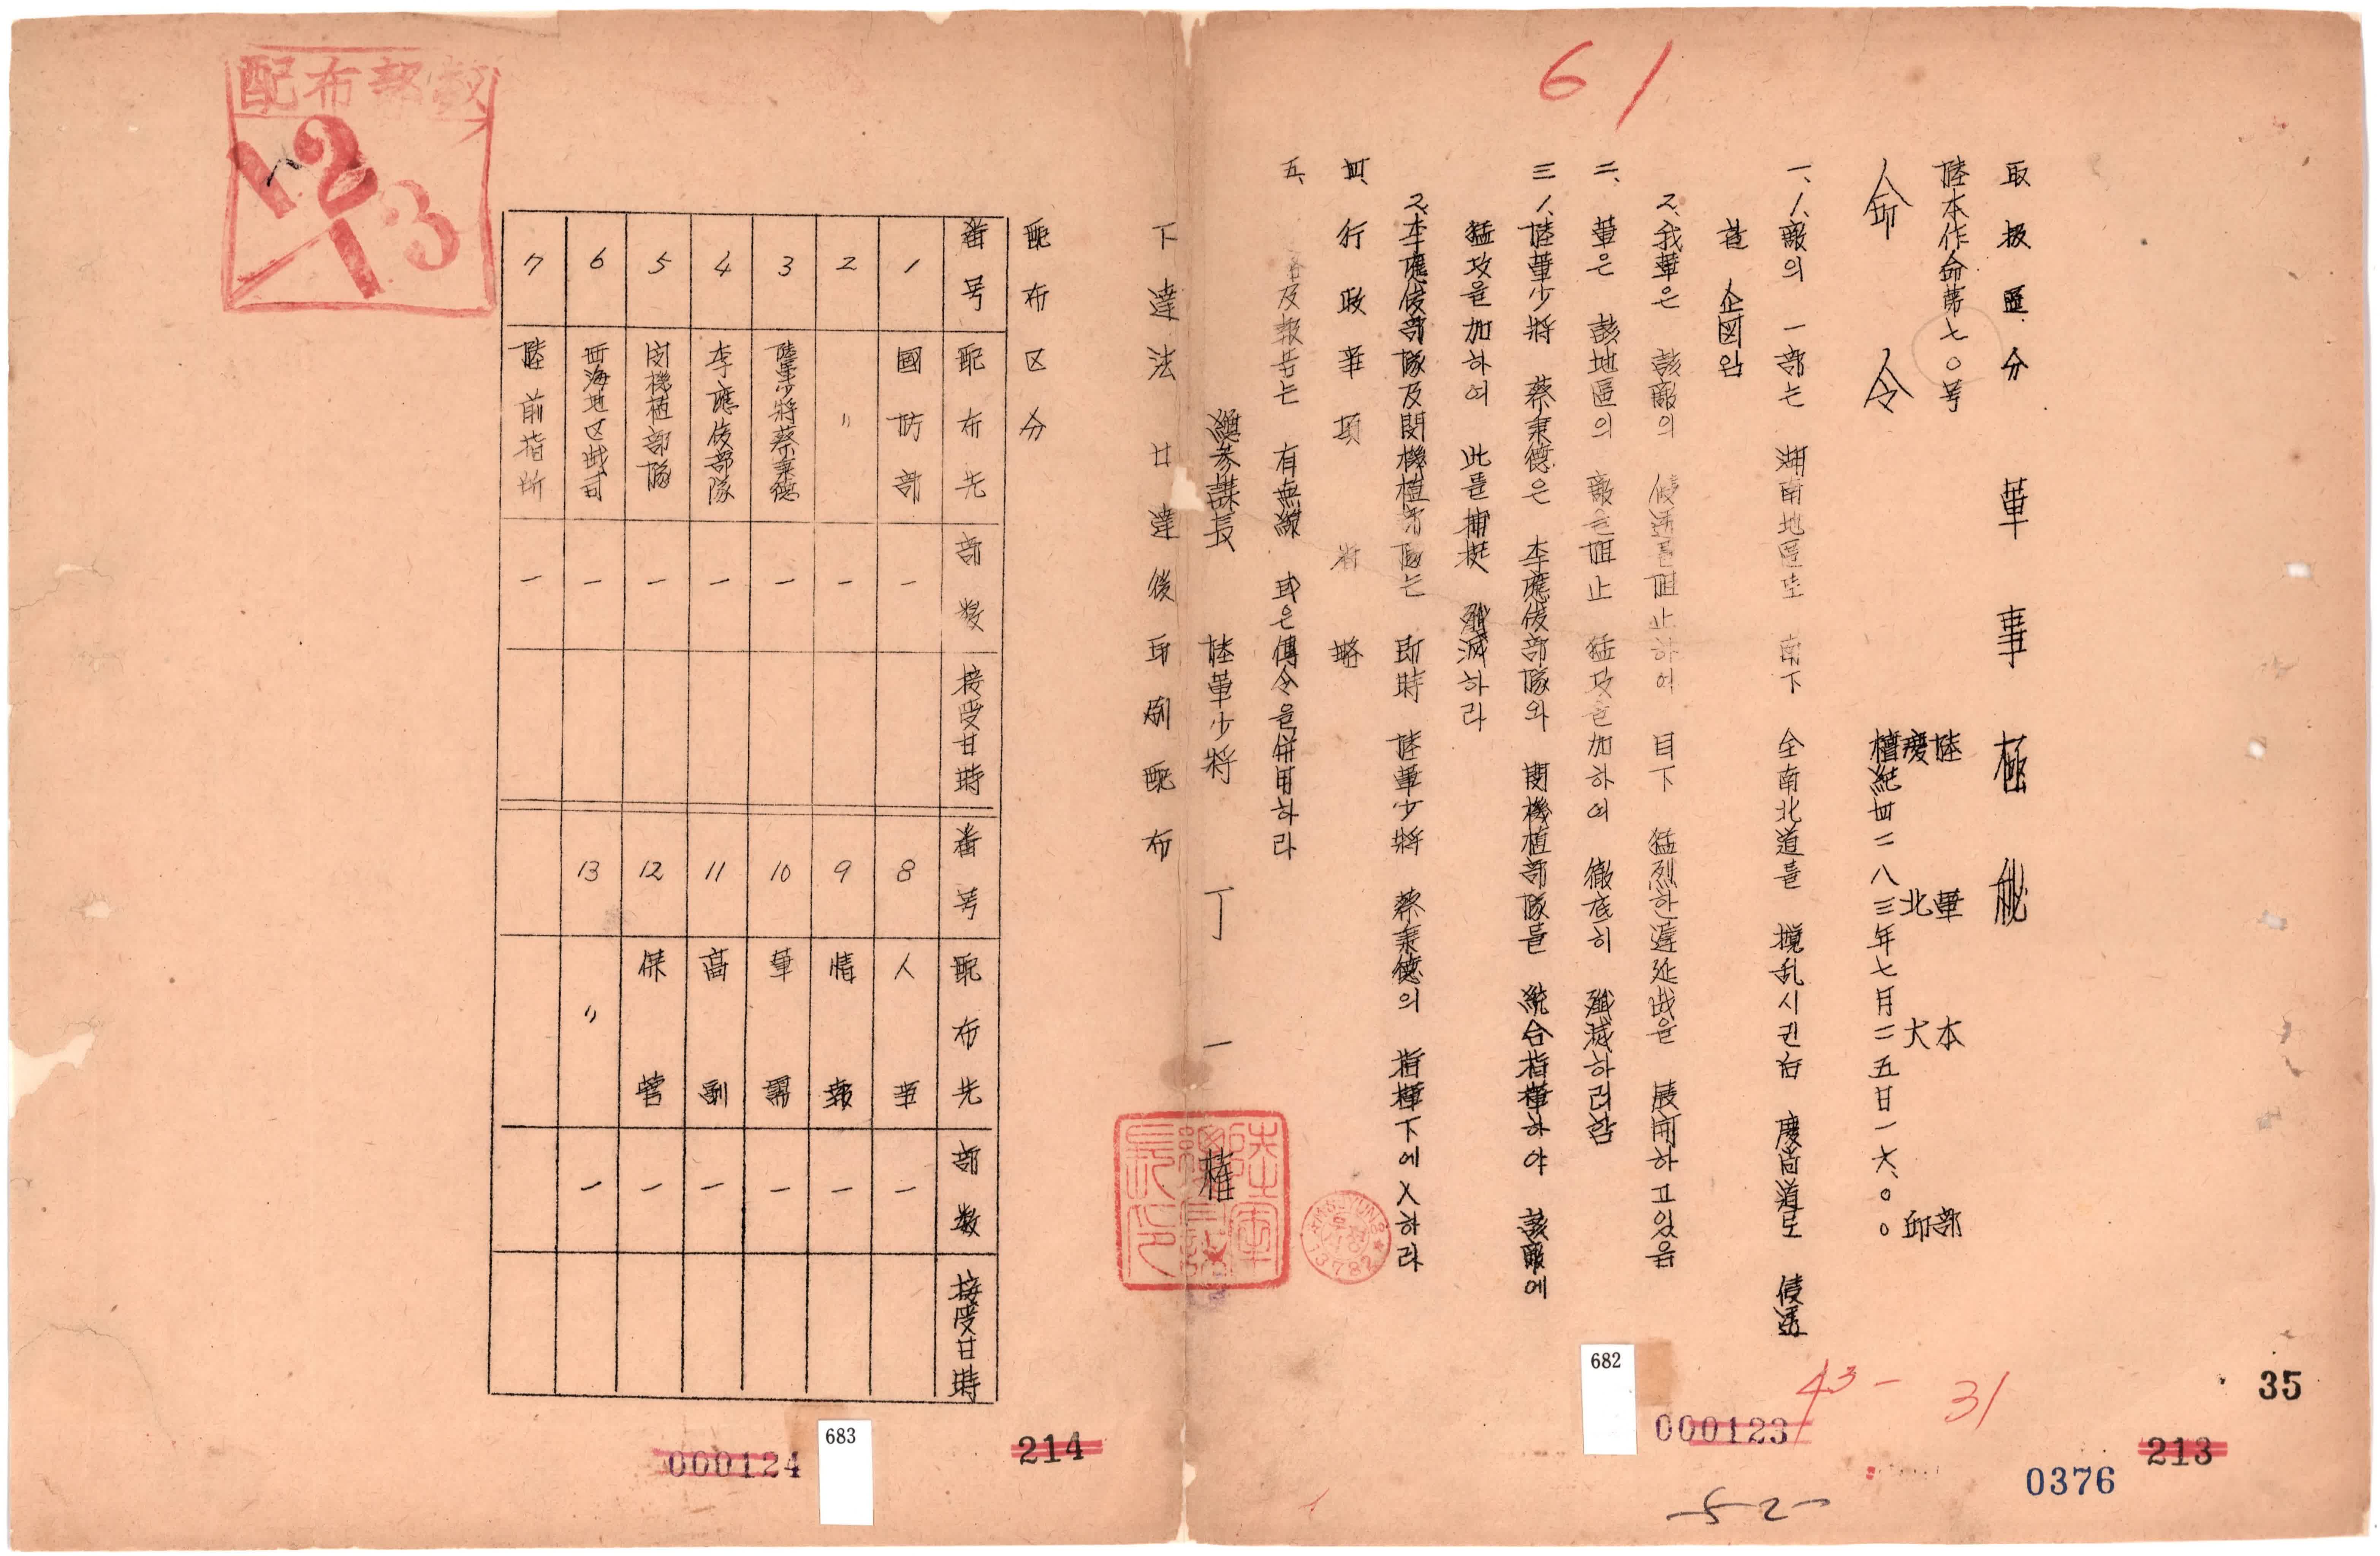 61
取扱區分 軍事極秘
陸本作命第七〇号
陸軍本部
慶北大邱
檀紀四二八三年七月二五日一六、〇〇
命令
一、1、敵의 一部는 湖南地區로 南下 全南北道를 攪乱시킨后 慶尚道로 侵透
할 企図임
2、我軍은 該敵의 侵透를 阻止하여 目下 猛烈한 遅延战을 展開하고있음
二、軍은 該地區의 敵을 阻止 猛攻을 加하여 徹底히 殲滅하려함
三 1、陸軍少將 蔡秉德은 李應俊部隊와 閔機植部隊를 統合指揮하야 該敵에
猛攻을 加하여 此를 捕捉 殲滅하라
2、李應俊部隊及閔機植部隊는 即時 陸軍少將 蔡秉德의 指揮下에 入하라
四、行政事項 省略
五、 及報告는 有無線 或은 傳令을 併用하라
總參謀長 陸軍少將 丁一權
陸軍總參謀長印
13782
下達法 口達後印刷配布
配布区分
番号 配布先 部数 接受日時 番号 配布先 部数 接受日時
1 國防部 一 8 人事 一
2 〃 一 9 情報 一
3 陸軍少將蔡秉德 一 10 軍需 一
4 李應俊部隊 一 11 高副 一
5 閔機植部隊 一 12 保営 一
6 西海地区战司 一 13 〃 一
7 陸前指所 一
配布部数
12
13
682
43-31
000123
35
213
0376
-52-
683
000124
214